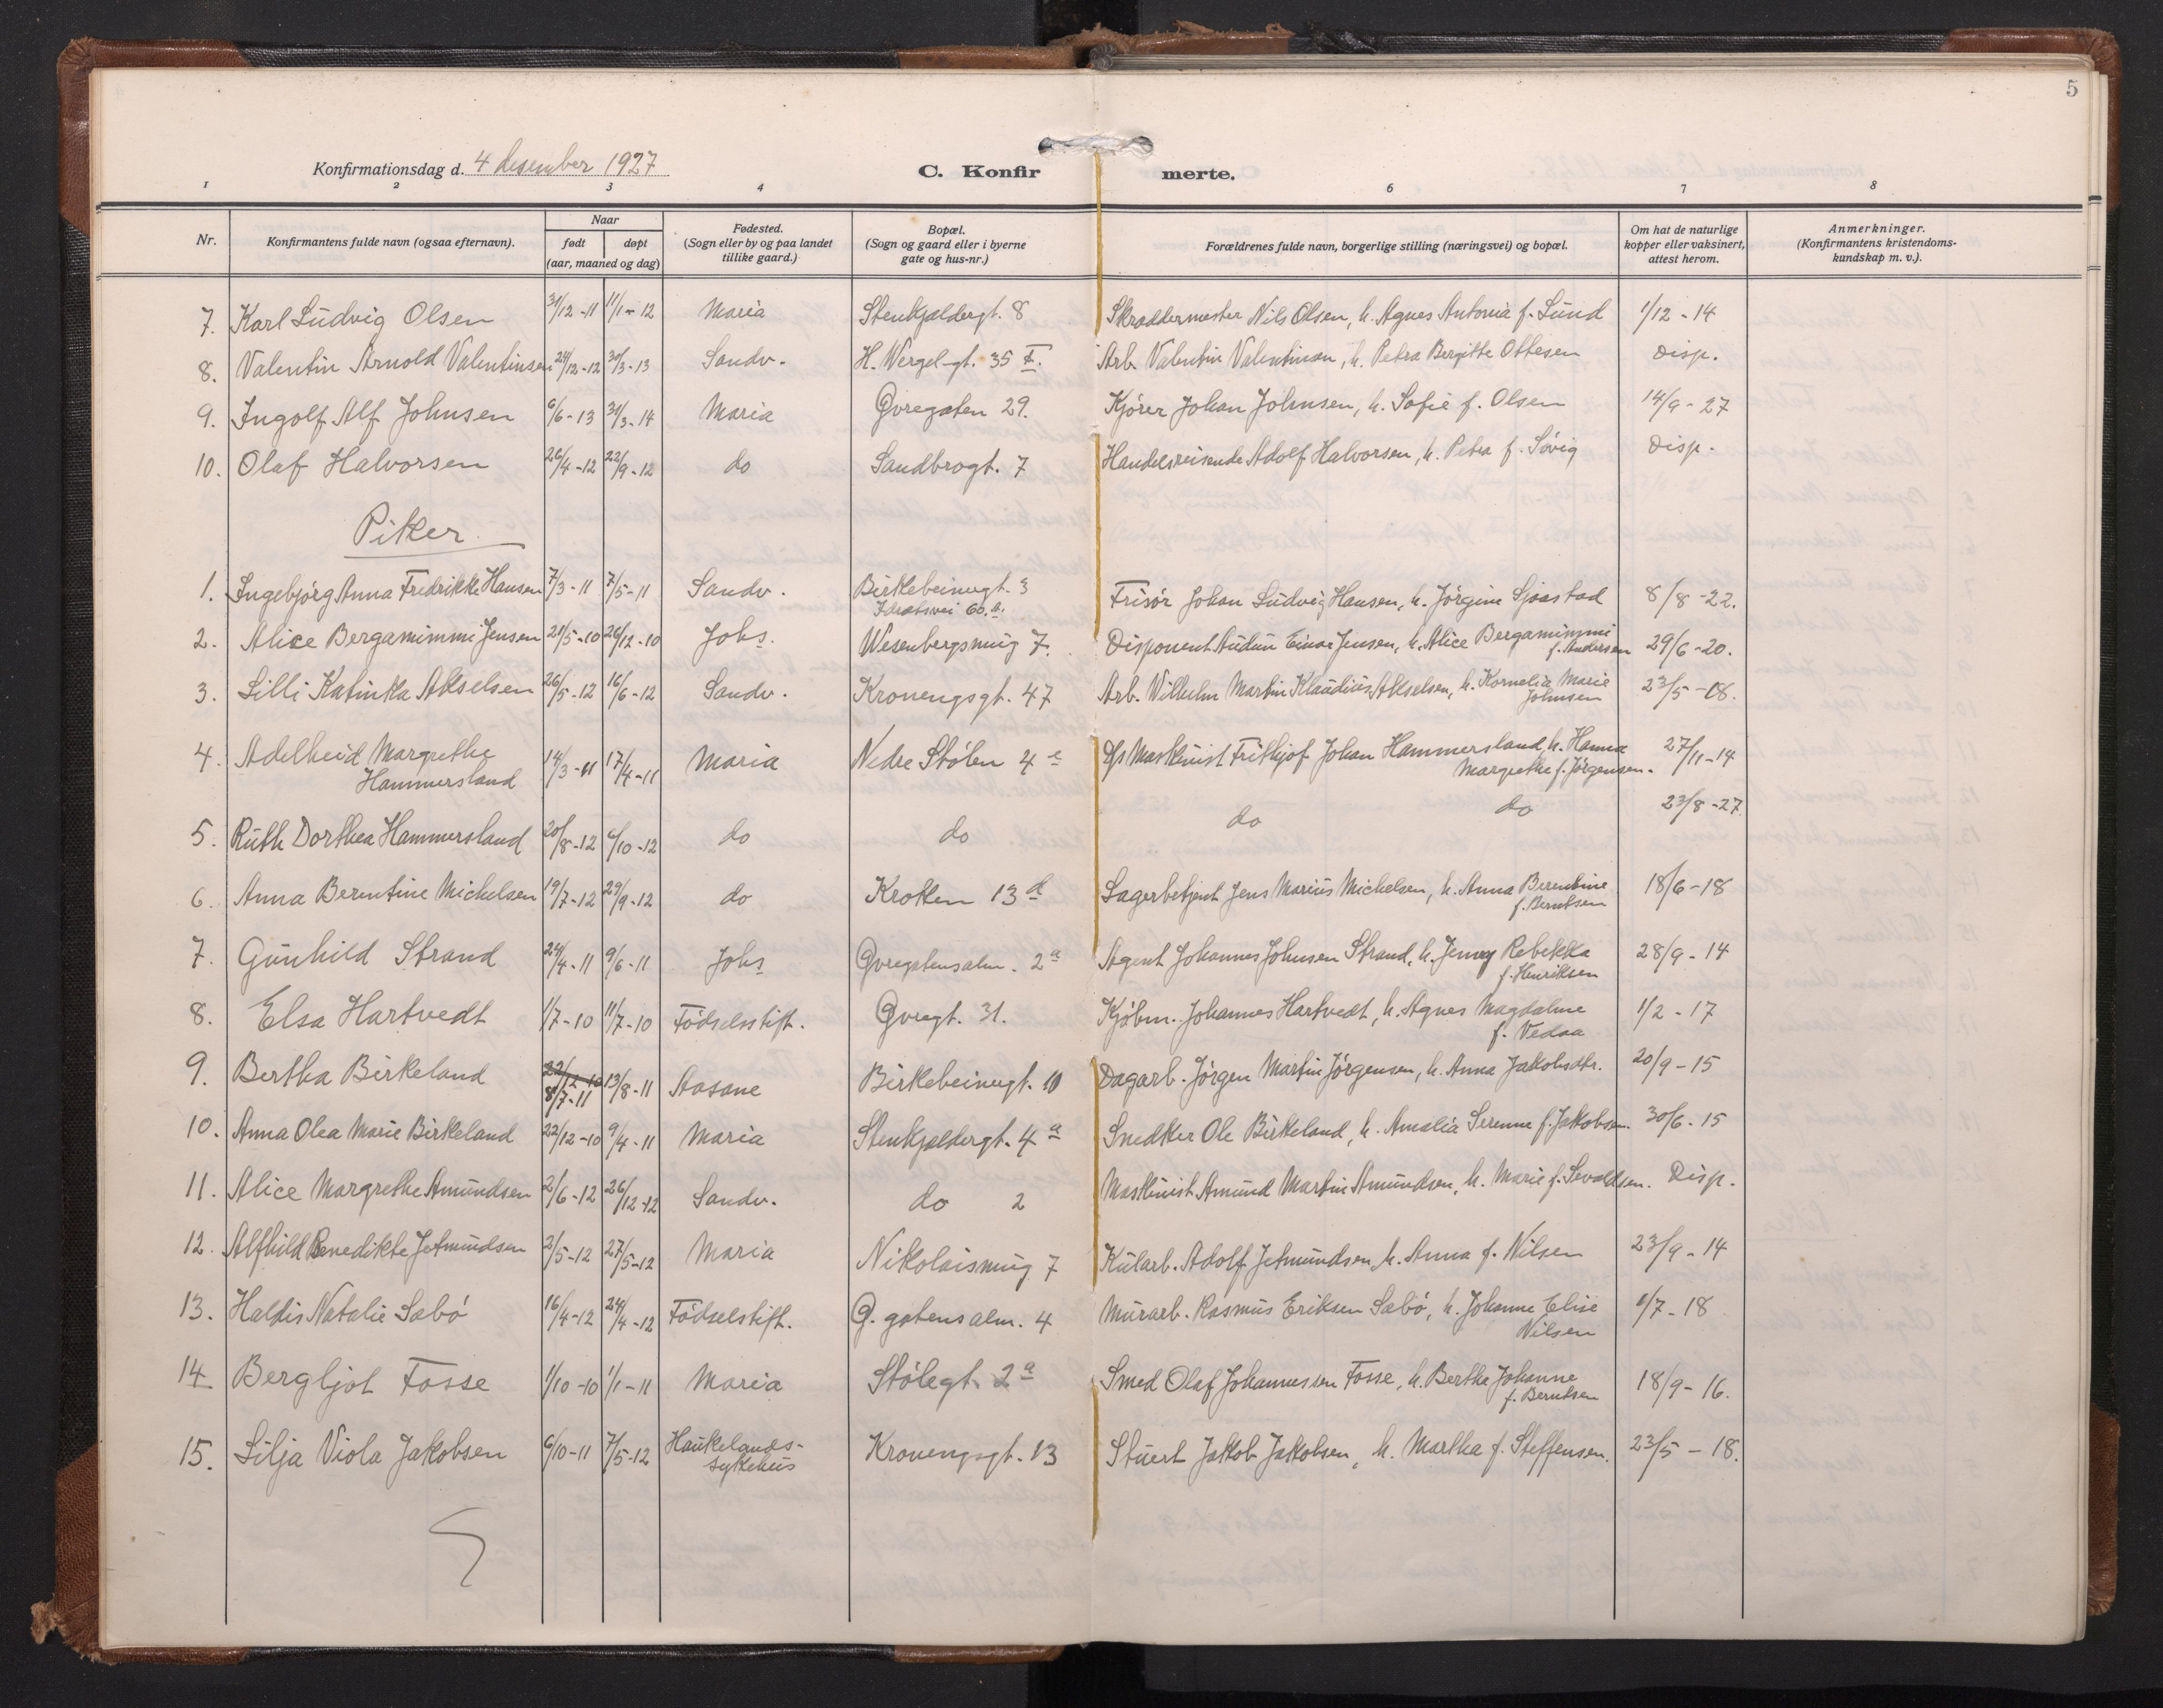 5
Konfirmationsdag d. 4 desember 1927
C. Konfirmerte.
1 2 3 4 6 7 8
Nr. Konfirmantens fulde navn (ogsaa efternavn). Naar født døpt (aar, maaned og dag) Fødested. (Sogn eller by og paa landet tillike gaard.) Bopæl. (Sogn og gaard eller i byerne gate og hus-nr.) Forældrenes fulde navn, borgerlige stilling (næringsvei) og bopæl. Om hat de naturlige kopper eller vaksinert, attest herom. Anmerkninger. (Konfirmantens kristendoms-kundskap m. v.).
7. Karl Ludvig Olsen 31/12-11 11/1-12 Maria Stenkjældergt. 8 Skræddermester Nils Olsen, h. Agnes Antonia f. Lund 1/12-14
8. Valentin Arnold Valentinsen 24/12-12 30/3-13 Sandv. H. Wergel-gt. 35 I. Arb. Valentin Valentinsen, h. Petra Bergitte Ottesen Disp.
9. Ingolf Alf Johnsen 6/6-13 31/3-14 Maria Øvregaten 29. Kjører Johan Johnsen, h. Sofie f. Olsen 14/9-27
10. Olaf Halvorsen 26/4-12 22/9-12 do Sandbrogt. 7 Handelsreisende Adolf Halvorsen, h. Petra f. Søvig Disp.
Piker.
1. Ingebjørg Anna Fredrikke Hansen 7/3-11 7/5-11 Sandv. Birkebeinergt. 3 Frisør Johan Ludvig Hansen, h. Jørgine Sjaastad 8/8-22.
Idrætsvei 60.a.
2. Alice Bergamimmi Jensen 21/5-10 26/12-10 Johs. Wesenbergsmug 7. Disponent Audun Einar Jensen, h. Alice Bergamimmi f. Andersen 29/6-20.
3. Lilli Katinka Akselsen 26/5-12 16/6-12 Sandv. Kronengsgt. 47 Arb. Vilhelm Martin Klaudius Akselsen, h. Kornelia Marie Johnsen 23/5-08.
4. Adelheid Margrethe Hammersland 14/3-11 17/4-11 Maria Nedre Stølen 4 e Maskinist Frithjof Johan Hammersland, h. Hanna Margrethe f. Jørgensen. 27/11-14
5. Ruth Dorthea Hammersland 20/8-12 6/10-12 do do do do 23/8-27
6. Anna Berentine Michelsen 19/7-12 29/9-12 do Kroken 13 d Lagerbetjent Jens Marius Michelsen, h. Anna Berentine f. Berntsen 18/6-18
7. Gunhild Strand 24/4-11 9/6-11 Johs Øvregatensalm. 2 a Agent Johannes Johnsen Strand, h. Jenny Rebekka f. Henriksen 28/9-14
8. Elsa Hartvedt 1/7-10 11/7-10 Fødselsstift. Øvregt. 31. Kjøbm. Johannes Hartvedt, h. Agnes Magdalene f. Vedaa 1/2-17
9. Bertha Birkeland 22/12-10 8/7-11 13/8-11 Aasane Birkebeinergt. 10 Dagarb. Jørgen Martin Jørgensen, h. Anna Jakobsdtr. 20/9-15
10. Anna Olea Marie Birkeland 22/12-10 9/4-11 Maria Stenkjældergt. 4 a Snedker Ole Birkeland, h. Amalia Serenne f. Jakobsen. 30/6-15
11. Alice Margrethe Amundsen 2/6-12 26/12-12 Sandv. do 2 Maskinist Amund Martin Amundsen, h. Marie f. Sevaldsen. Disp.
12. Alfhild Benedikte Jetmundsen 2/5-12 27/5-12 Maria Nikolaismug 7 Kularb. Adolf Jetmundsen, h. Anna f. Nilsen 23/9-14
13. Haldis Natalie Sabø 16/4-12 24/4-12 Fødselstift. Ø. gatensalm. 4 Murarb. Rasmus Eriksen Sabø, h. Johanne Elise Nilsen 1/7-18
14 Bergljot Fosse 1/10-10 1/1-11 Maria Stølegt. 2 a Smed Olaf Johannessen Fosse, h. Berthe Johanne f. Berntsen 18/9-16.
15. Silja Viola Jakobsen 6/10-11 7/5-12 Haukelands-sykehus Kronengsgt. 13 Stuert Jakob Jakobsen, h. Martha f. Steffensen. 23/5-18.